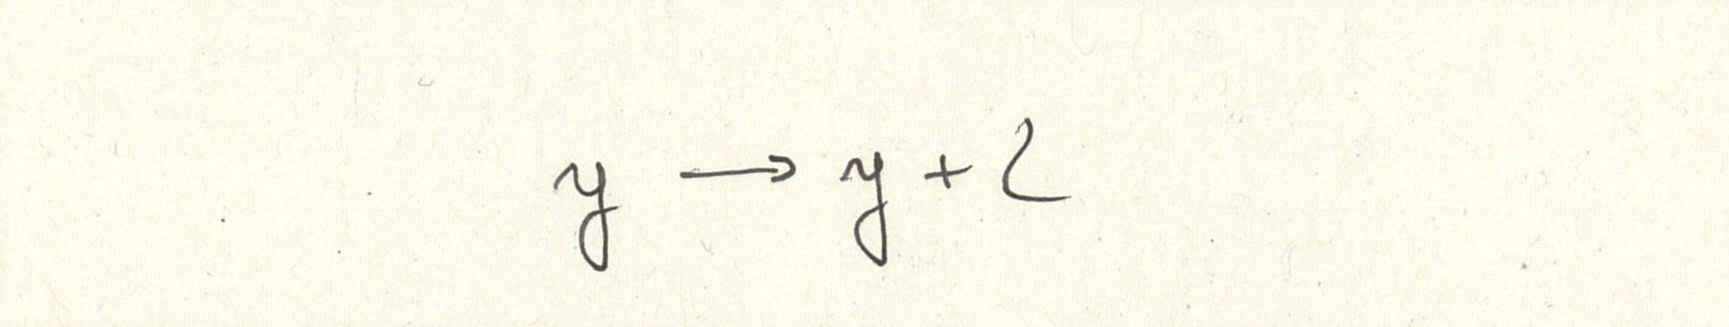 y → y + 2